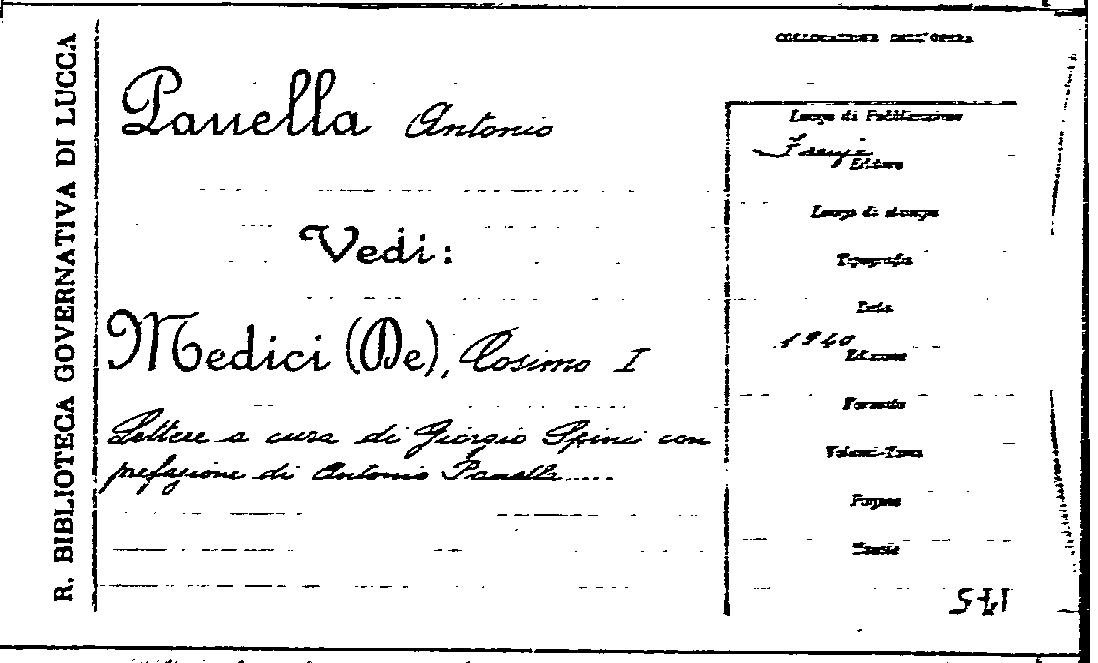 R. BIBLIOTECA GOVERNATIVA DI LUCCA
COLLOCAZIONE DELL'OPERA
Panella Antonio
Vedi:
Medici (De), Cosimo I
Lettere a cura di Giorgio Spini con
prefazione di Antonio Panella.....
Luogo di Pubblicazione
Editore
Luogo di stampa
Tipografia
Data
1940
Edizione
Formato
Volumi-Tomi
Pagine
Tavole